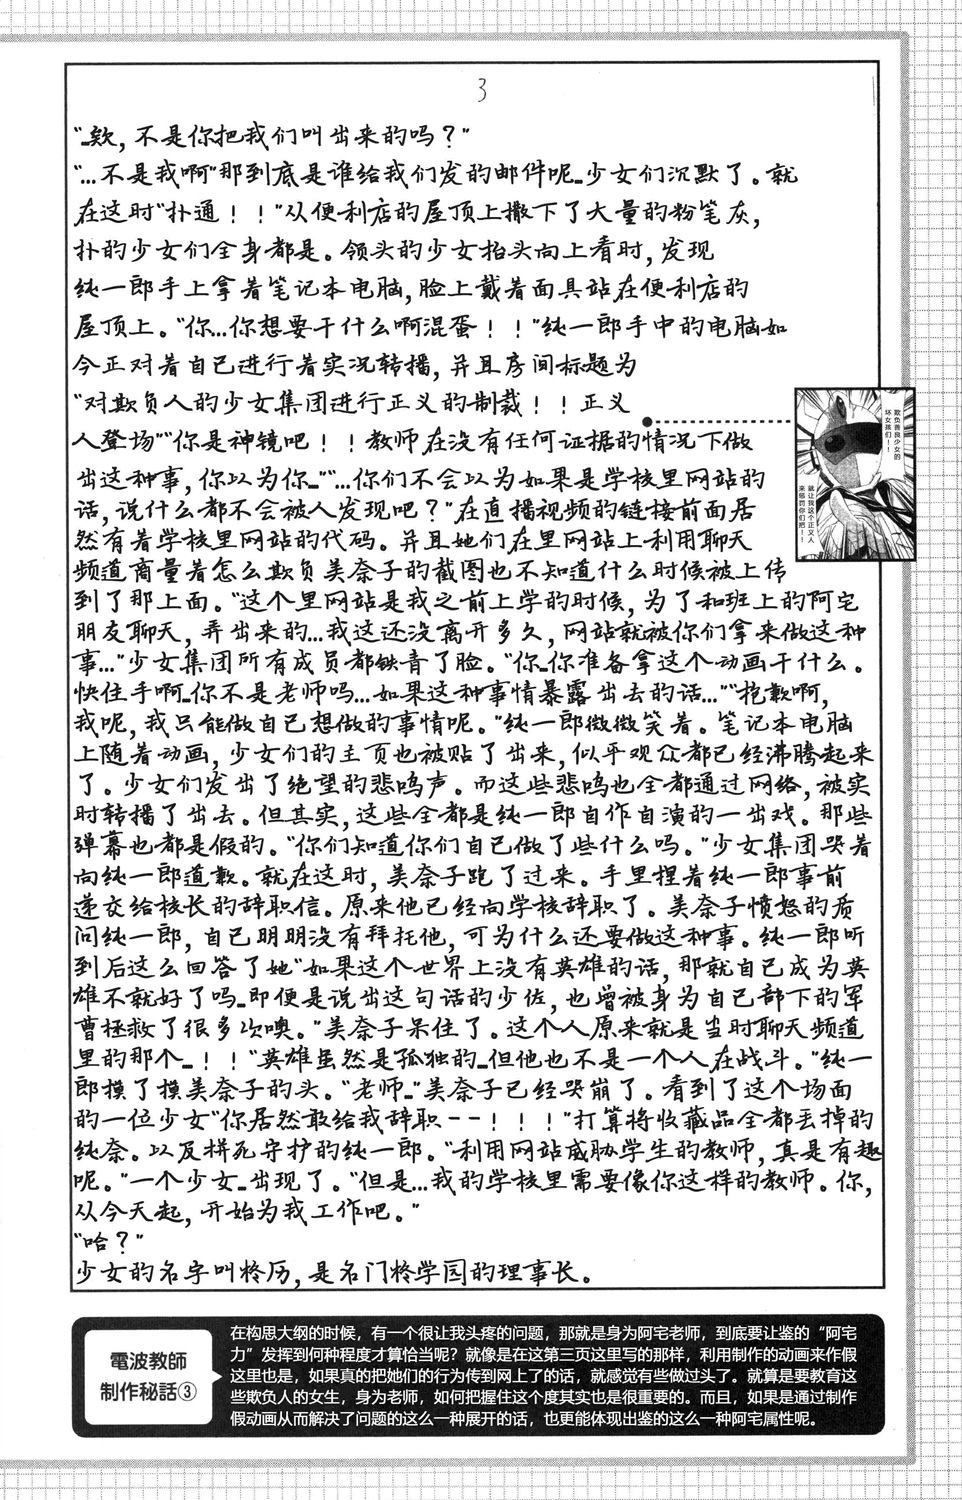 3
"…欸,不是你把我们叫出来的吗？"
"…不是我啊"那到底是谁给我们发的邮件呢…少女们沉默了。就
在这时"扑通！！"从便利店的屋顶上撒下了大量的粉笔灰,
扑的少女们全身都是。领头的少女抬头向上看时,发现
纯一郎手上拿着笔记本电脑,脸上戴着面具站在便利店的
屋顶上。"你…你想要干什么啊混蛋！！"纯一郎手中的电脑如
今正对着自己进行着实况转播,并且房间标题为
"对欺负人的少女集团进行正义的制裁！！正义
人登场""你是神镜吧！！教师在没有任何证据的情况下做
出这种事,你以为你…""…你们不会以为如果是学校里网站的
话,说什么都不会被人发现吧？"在直播视频的链接前面居
然有着学校里网站的代码。并且她们在里网站上利用聊天
频道商量着怎么欺负美奈子的截图也不知道什么时候被上传
到了那上面。"这个里网站是我之前上学的时候,为了和班上的阿宅
朋友聊天,弄出来的…我这还没离开多久,网站就被你们拿来做这种
事…"少女集团所有成员都铁青了脸。"你…你准备拿这个动画干什么。
快住手啊…你不是老师吗…如果这种事情暴露出去的话…""抱歉啊,
我呢,我只能做自己想做的事情呢。"纯一郎微微笑着。笔记本电脑
上随着动画,少女们的主页也被贴了出来,似乎观众都已经沸腾起来
了。少女们发出了绝望的悲鸣声。而这些悲鸣也全都通过网络,被实
时转播了出去。但其实,这些全都是纯一郎自作自演的一出戏。那些
弹幕也都是假的。"你们知道你们自己做了些什么吗。"少女集团哭着
向纯一郎道歉。就在这时,美奈子跑了过来。手里捏着纯一郎事前
递交给校长的辞职信。原来他已经向学校辞职了。美奈子愤怒的质
问纯一郎,自己明明没有拜托他,可为什么还要做这种事。纯一郎听
到后这么回答了她"如果这个世界上没有英雄的话,那就自己成为英
雄不就好了吗…即便是说出这句话的少佐,也曾被身为自己部下的军
曹拯救了很多次噢。"美奈子呆住了。这个人原来就是当时聊天频道
里的那个…！！"英雄虽然是孤独的…但他也不是一个人在战斗。"纯一
郎摸了摸美奈子的头。"老师…"美奈子已经哭崩了。看到了这个场面
的一位少女"你居然敢给我辞职--！！！"打算将收藏品全都丢掉的
纯奈。以及拼死守护的纯一郎。"利用网站威胁学生的教师,真是有趣
呢。"一个少女…出现了。"但是…我的学校里需要像你这样的教师。你,
从今天起,开始为我工作吧。"
"哈？"
少女的名字叫柊历,是名门柊学园的理事长。
欺负善良少女的
坏女孩们！！
就让我这个正义人
来惩罚你们把！！
電波教師
制作秘話③
在构思大纲的时候，有一个很让我头疼的问题，那就是身为阿宅老师，到底要让鉴的“阿宅
力”发挥到何种程度才算恰当呢？就像是在这第三页这里写的那样，利用制作的动画来作假
这里也是，如果真的把她们的行为传到网上了的话，就感觉有些做过头了。就算是要教育这
些欺负人的女生，身为老师，如何把握住这个度其实也是很重要的。而且，如果是通过制作
假动画从而解决了问题的这么一种展开的话，也更能体现出鉴的这么一种阿宅属性呢。